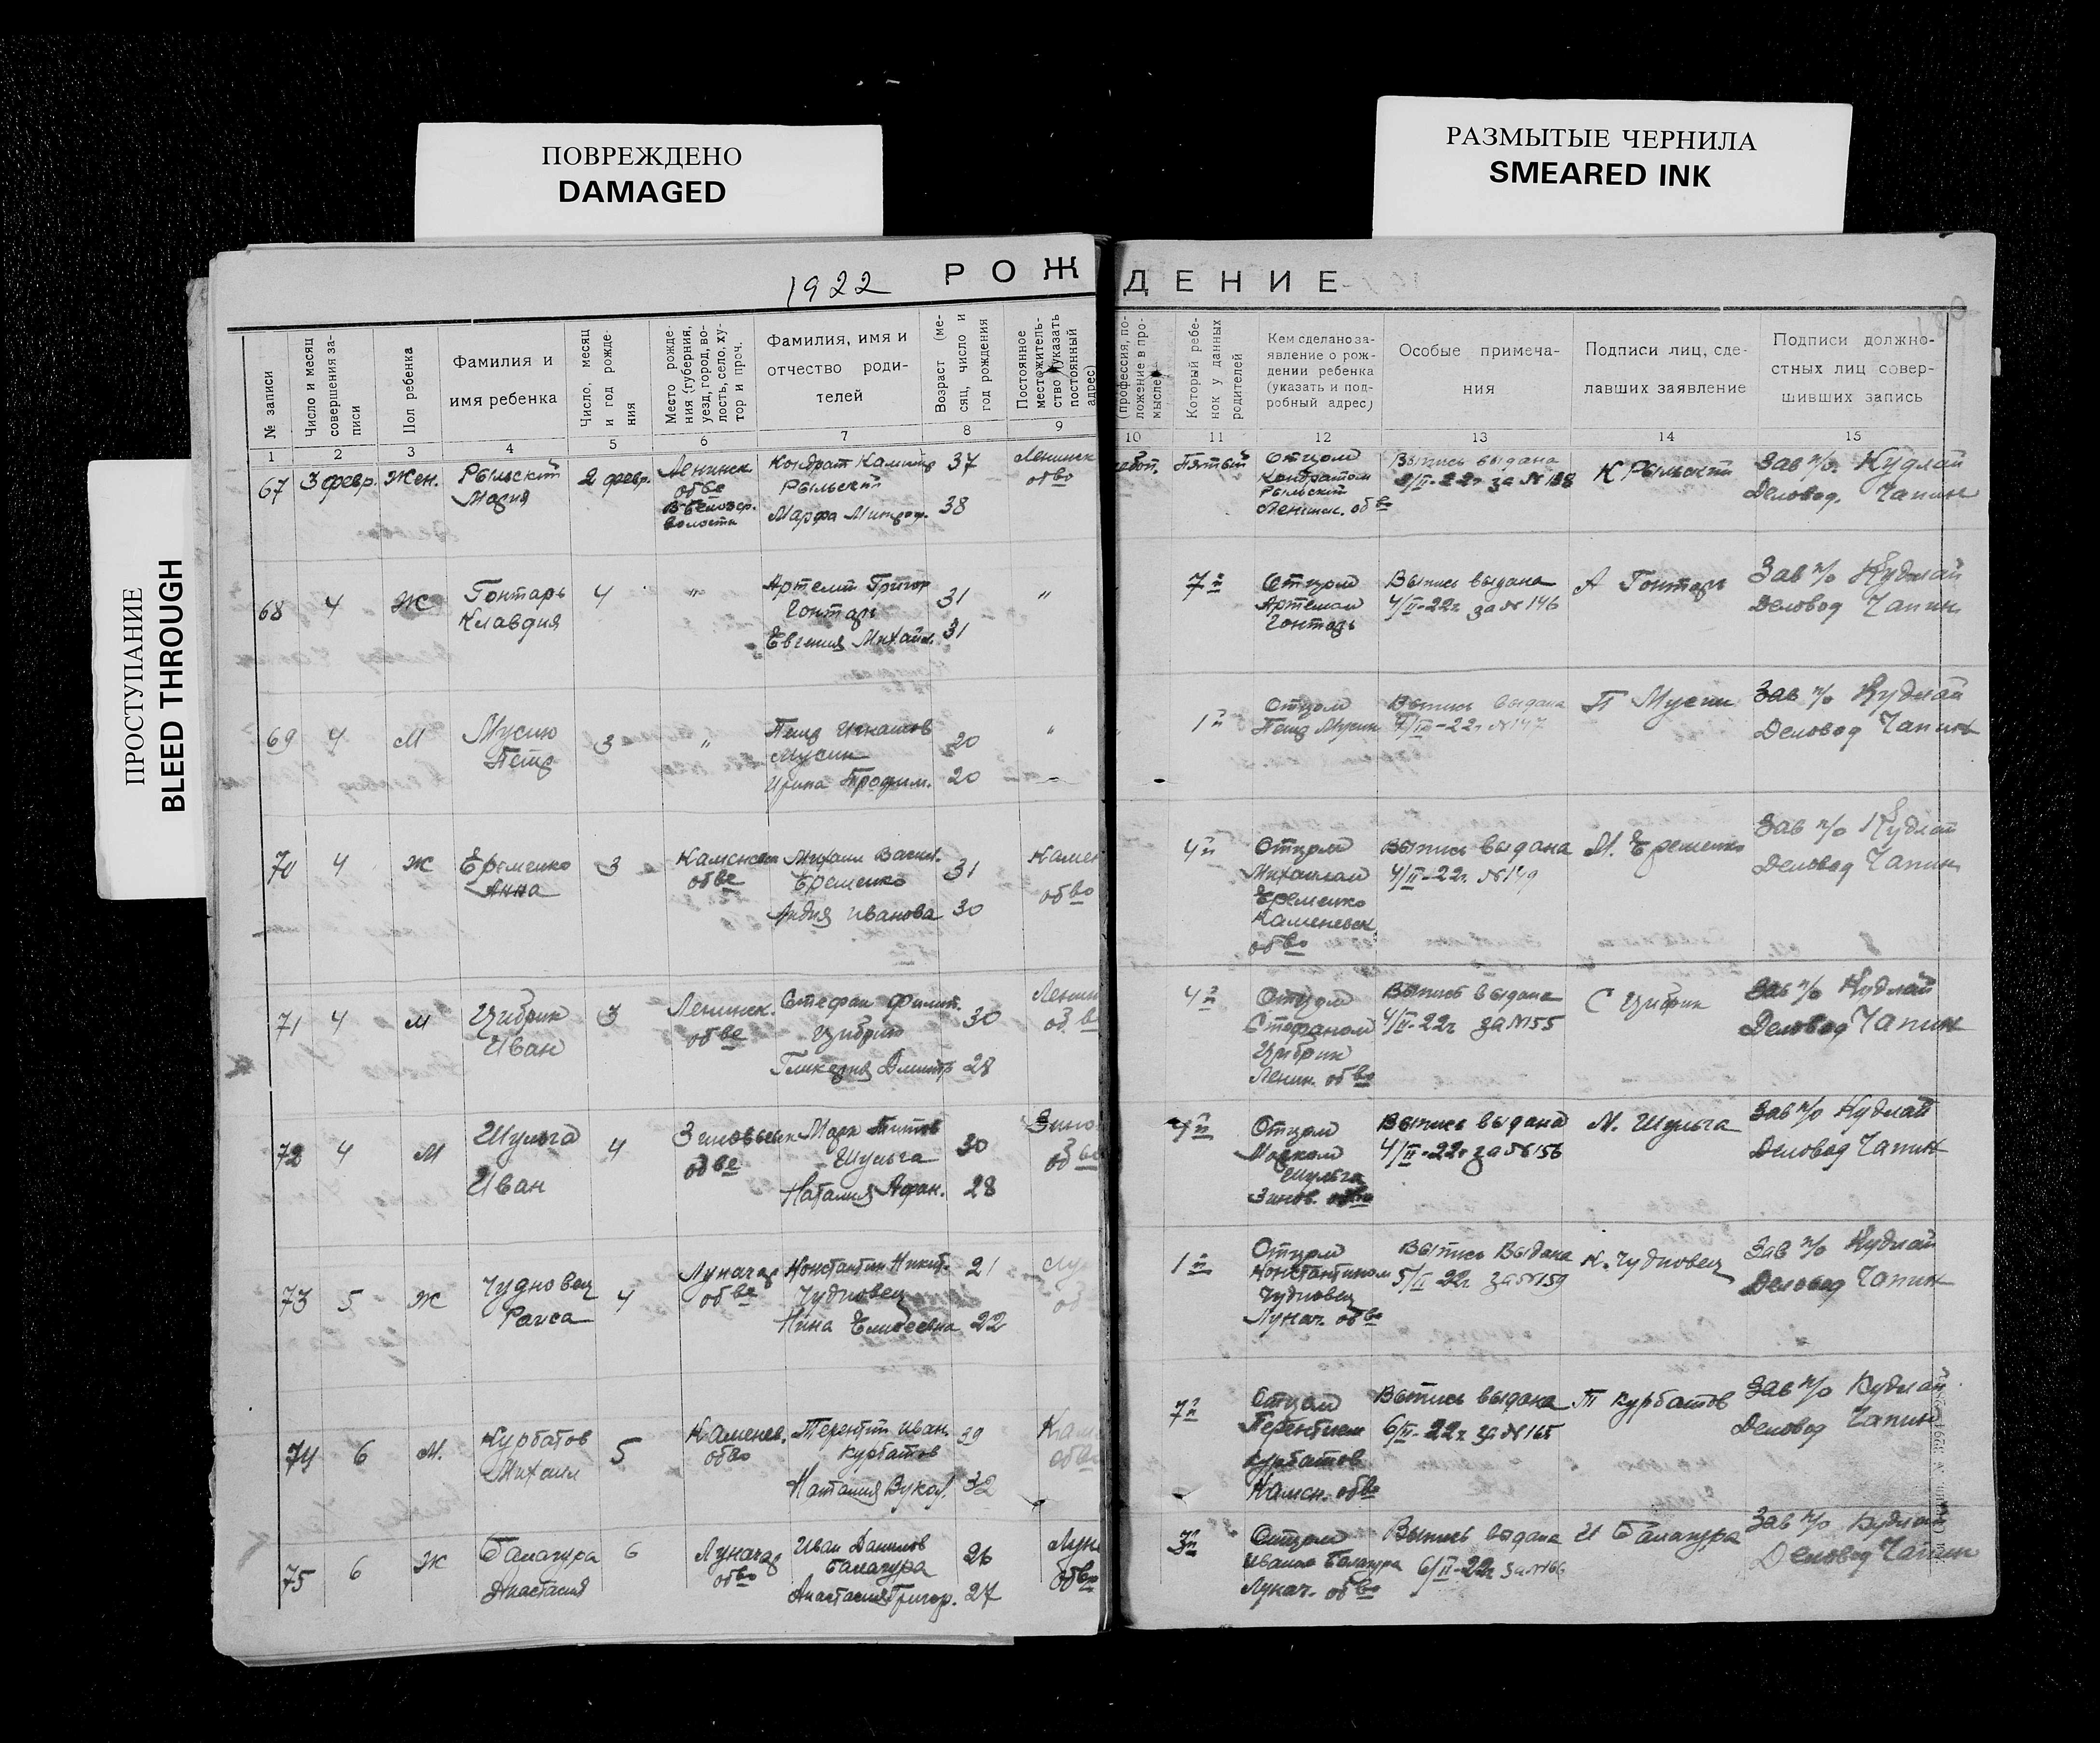 ПОВРЕЖДЕНО
DAMAGED
РАЗМЫТЫЕ ЧЕРНИЛА
SMEARED INK
ПРОСТУПАНИЕ
BLEED THROUGH
1922
РОЖДЕНИЕ
№ записи
Число и месяц совершения записи
Пол ребенка
Фамилия и
имя ребенка
Число, месяц
и год рожде-
ния
Место рожде-
ния (губерния,
уезд, город, во-
лость, село, ху-
тор и проч.
Фамилия, имя и
отчество роди-
телей
Возраст (ме-
сяц, число и
год рождения
Постоянное
местожитель-
ство (указать
постоянный
адрес)
(профессия, по-
ложение в про-
мысле)
Который ребе-
нок у данных
родителей
Кем сделано за-
явление о рож-
дении ребенка
(указать и под-
робный адрес)
Особые примеча-
ния
Подписи лиц, сде-
лавших заявление
Подписи должно-
стных лиц совер-
шивших запись
1 2 3 4 5 6 7 8 9 10 11 12 13 14 15
67 3 февр. Жен.
Рыльский
Мария
2 февр.
Ленинск
обве
волости
Кондрат
Рыльский
Марфа
37
38
Ленинск
обво
Пятый
Отцом
Кондратом
Рыльский
Ленинск. обво
Выпись выдана
3/II-22г за №138
К Рыльский
Зав п/о. Кудлай
Деловод. Чапин
68 4 Ж
Гонтарь
Клавдия
4
"
Артемий Григор
Гонтарь
Евгения Михайл.
31
31
"
7й
Отцом
Артемом
Гонтарь
Выпись выдана
4/II-22г за №146
А Гонтарь
Зав п/о Кудлай
Деловод Чапин
69 4 М
Мусин
Петр
3
"
Петр Игнатов
Мусин
Ирина Трофим.
20
20
"
1й
Отцом
Петр Мусин
Выпись выдана
4/II-22г №147
П Мусин
Зав п/о Кудлай
Деловод Чапин
70 4 Ж
Еременко
Анна
3
Каменев
обве
Михаил Васил.
Еременко
Лидия Иванова
31
30
Камен
обво
4й
Отцом
Михаилом
Еременко
Каменевск
обво
Выпись выдана
4/II-22г. №149
М. Еременко
Зав п/о Кудлай
Деловод Чапин
71 4 М
Цибрин
Иван
3
Ленинск.
обве
Стефан Филип.
Цибрин
Гликерия Дмитр
30
28
Ленин
обво
4й
Отцом
Стефаном
Цибрин
Ленин. обво
Выпись выдана
4/II-22г за №155
С Цибрин
Зав п/о Кудлай
Деловод Чапин
72 4 М
Шульга
Иван
4
Зиновьевск
обве
Марк Титов
Шульга
Наталия Афан.
30
28
Зино
обво
Отцом
Марком
Шульга
Зинов. обво
Выпись выдана
4/II-22г за №156
М. Шульга
Зав п/о Кудлай
Деловод Чапин
73 5 Ж
Чудновец
Раиса
4
Луначар
обве
Константин Никит.
Чудновец
Нина Елисеевна
21
22
Лу
об
1й
Отцом
Константином
Чудновец
Лунач. обво
Выпись выдана
5/II 22г. за №159
К. Чудновец
Зав п/о Кудлай
Деловод Чапин
74 6 М.
Курбатов
Михаил
5
Каменев.
обво
Терентий Иван.
Курбатов
Наталия Вукол.
39
32
Кам
обво
7й
Отцом
Терентием
Курбатов
Камен. обво
Выпись выдана
6/II-22г. за №165
Т Курбатов
Зав п/о Кудлай
Деловод Чапин
75 6 Ж
Балагура
Анастасия
6
Луначар
обво
Иван Данилов
Балагура
Анастасия Григор.
26
27
Луна
обво
3й
Отцом
Иваном Балагура
Лунач. обво
Выпись выдана
6/II-22г за №166
И Балагура
Зав п/о Кудлай
Деловод Чапин